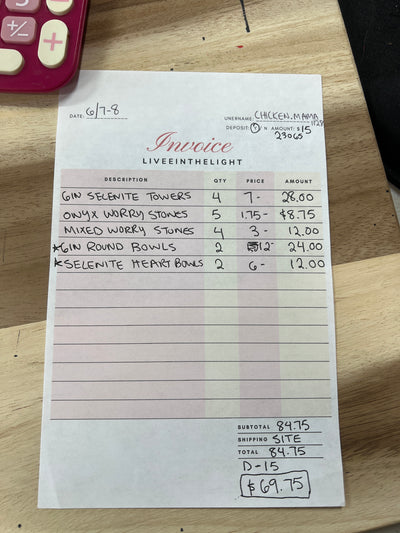 DATE: 6/7-8
USERNAME: CHICKEN.MAMA
1128
DEPOSIT: Y/N AMOUNT: $15
23065
Invoice
LIVEEINTHELIGHT
DESCRIPTION QTY PRICE AMOUNT
6IN SELENITE TOWERS 4 7- 28.00
ONYX WORRY STONES 5 1.75- $8.75
MIXED WORRY STONES 4 3- 12.00
*6IN ROUND BOWLS 2 12- 24.00
*SELENITE HEART BOWLS 2 6- 12.00
SUBTOTAL 84.75
SHIPPING SITE
TOTAL 84.75
D-15
$69.75